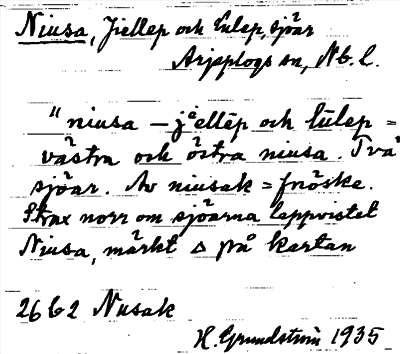 Niusa, Jiellep och Lulep, sjöar
Arjeplogs sn, Nb. l.
"niusa – jåellēp och lūlep =
västra och östra niusa. Två
sjöar. Av niusak = fnöske.
Strax norr om sjöarna lappvistet
Niusa, märkt △ på kartan
26 b 2 Nusak
H. Grundström 1935